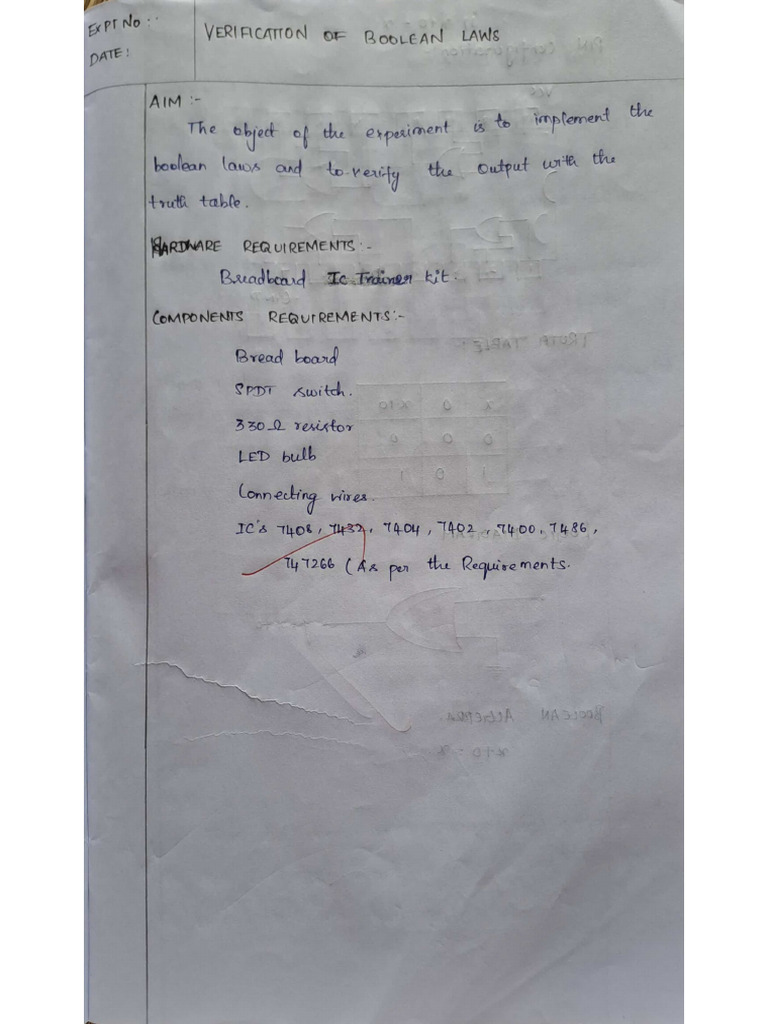 Expt No :-
DATE :
VERIFICATION OF BOOLEAN LAWS
AIM :-
The object of the experiment is to implement the
boolean laws and to verify the output with the
truth table.
HARDWARE REQUIREMENTS :-
Breadboard Ic Trainer kit.
COMPONENTS REQUIREMENTS :-
Bread board
SPDT switch.
330Ω resistor
LED bulb
Connecting wires.
IC's 7408, 7432, 7404, 7402, 7400, 7486,
747266 (As per the Requirements.